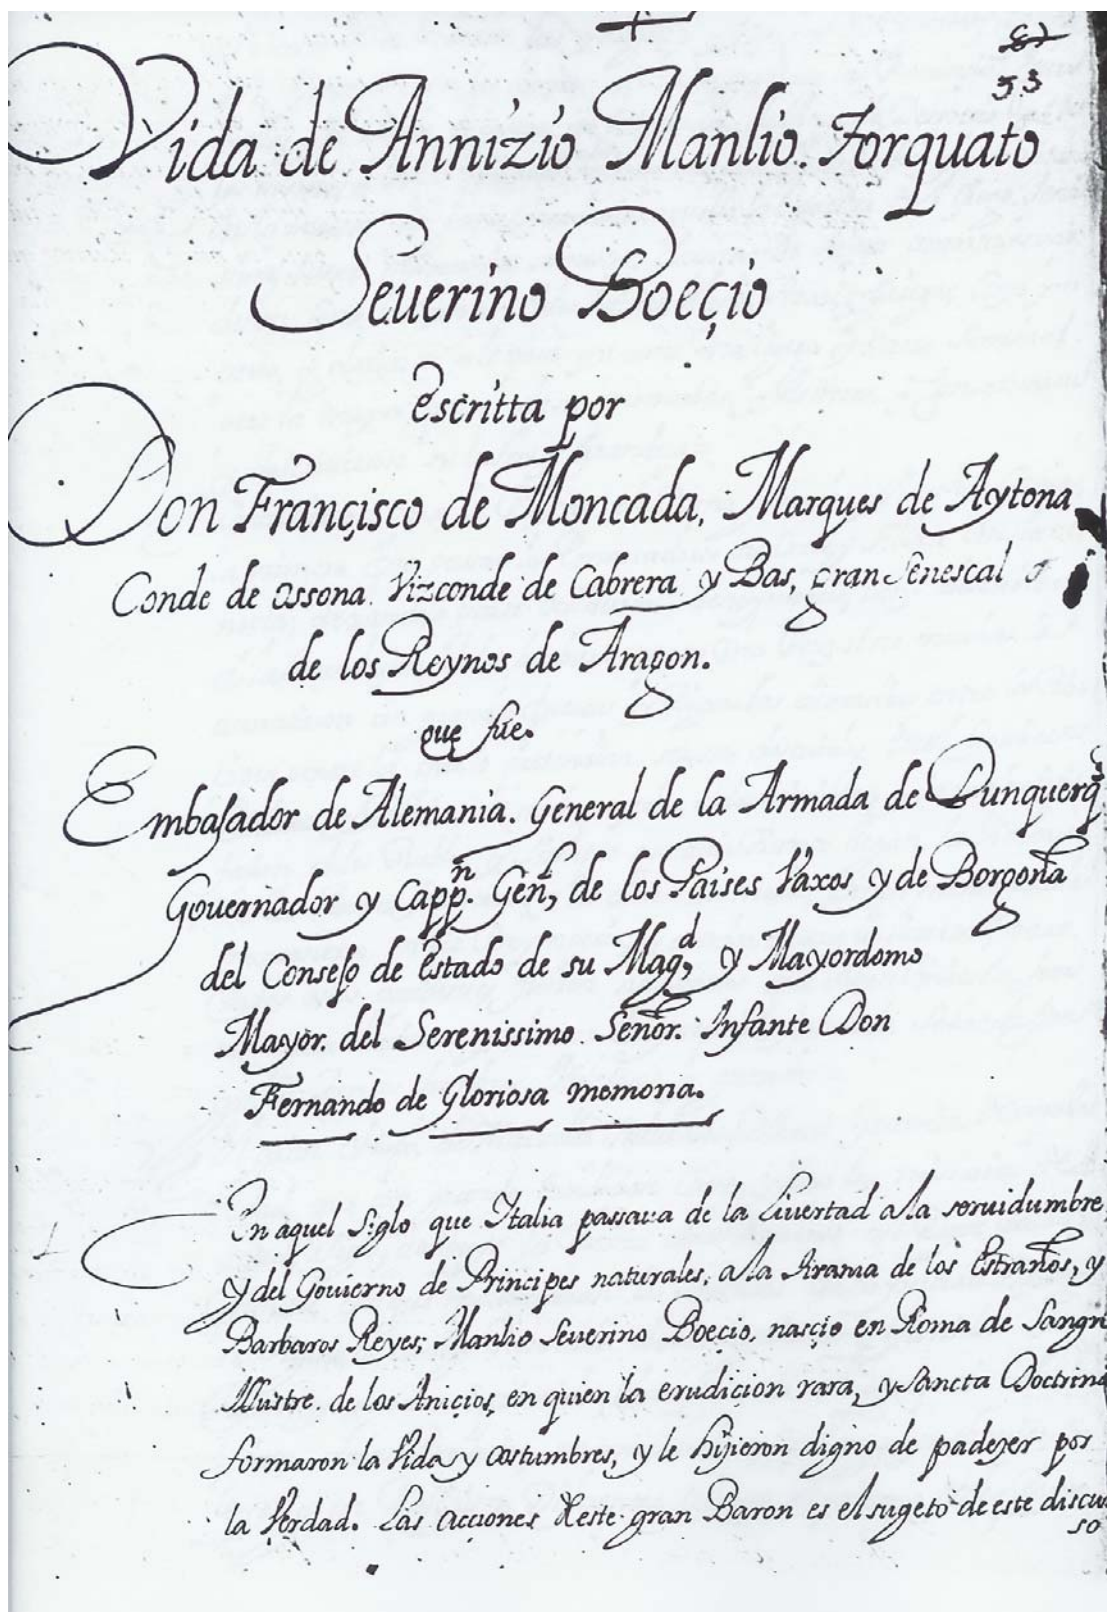 53
Vida de Annizio Manlio Torquato
Seuerino Boeçio
escritta por
Don Françisco de Moncada, Marques de Aytona
Conde de ossona Vizconde de Cabrera y Bas, gran Senescal
de los Reynos de Aragon.
que fue.
Embajador de Alemania. General de la Armada de Dunquerq̃
Gouernador y Capp.n Gen̄l, de los Paises Vaxos y de Borgoña
del Consejo de estado de su Magd, y Mayordomo
Mayor. del Serenissimo Señor. Infante Don
Fernando de Gloriosa memoria.
En aquel Siglo que Italia passaua de la Liuertad a la seruidumbre
y del Gouierno de Principes naturales, a la tirania de los Estraños, y
Barbaros Reyes; Manlio Seuerino Boecio, nasçio en Roma de Sangre
Illustre de los Aniçios, en quien la erudicion rara, y Sancta Doctrina
formaron la Vida y costumbres, y le hizieron digno de padezer por
la Verdad. Las acciones deste gran Baron es el sugeto de este discur
so